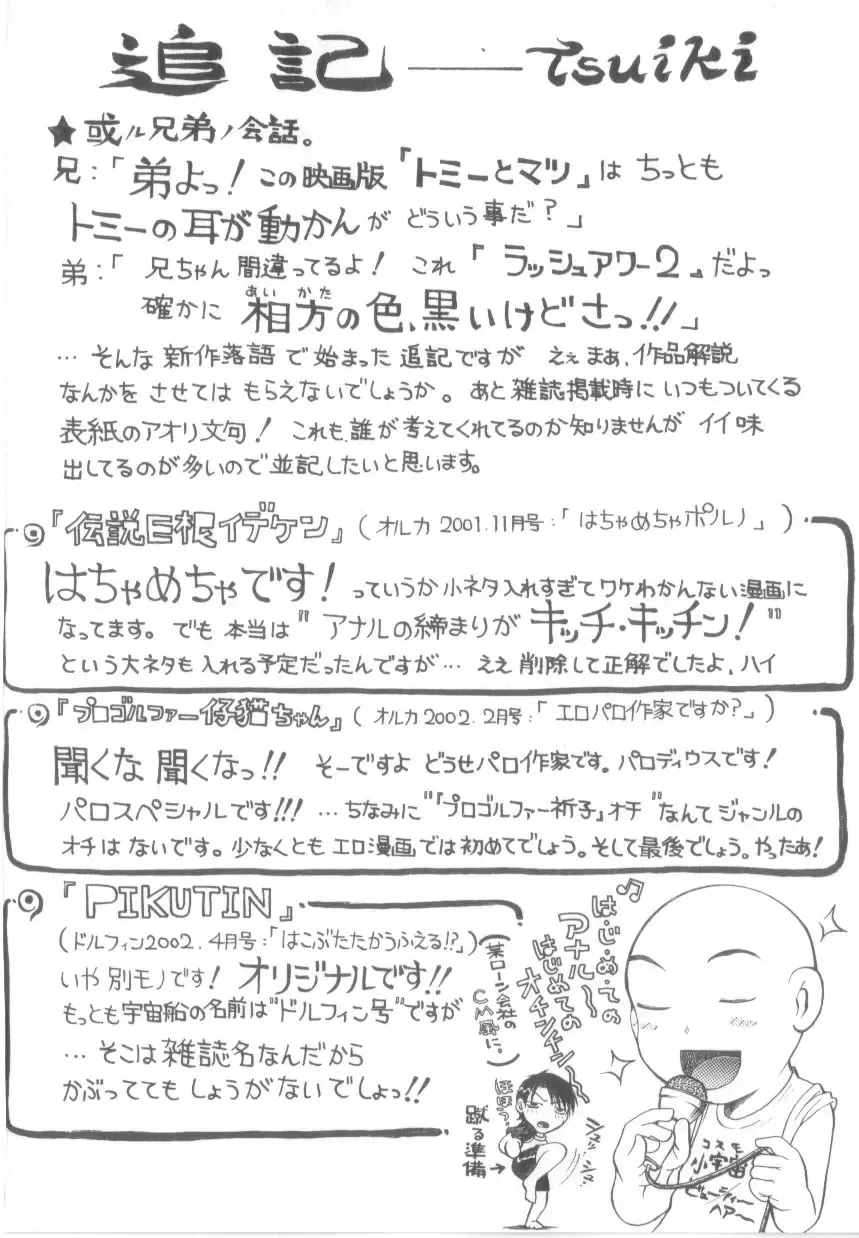 追記 ── tsuiki
★或ル兄弟ノ会話。
兄：「弟よっ！この映画版『トミーとマツ』は ちっとも
トミーの耳が動かんが どういう事だ？」
弟：「兄ちゃん間違ってるよ！ これ『ラッシュアワー2』だよっ
あい かた
確かに 相方の色、黒いけどさっ!!」
… そんな 新作落語 で始まった 追記ですが ええ まぁ、作品解説
なんかを させては もらえないでしょうか。あと 雑誌掲載時に いつもついてくる
表紙のアオリ文句！ これも、誰が考えてくれてるのか知りませんが イイ味
出してるのが多いので並記したいと思います。
『伝説巨根イデケン』（オルカ 2001.11月号：「はちゃめちゃポルノ」）
はちゃめちゃです！ っていうか小ネタ入れすぎてワケわかんない漫画に
なってます。でも 本当は “アナルの締まりが キッチ・キッチン！”
という大ネタも入れる予定だったんですが… ええ 削除して正解でしたよ、ハイ
『プロゴルファー仔猫ちゃん』（オルカ2002.2月号：「エロパロ作家ですか？」）
聞くな 聞くなっ!! そーですよ どうせパロ作家です。パロディウスです！
パロスペシャルです!!! …ちなみに“『プロゴルファー祈子』オチ”なんてジャンルの
オチは ないです。少なくとも エロ漫画では初めてでしょう。そして最後でしょう。やったあ！
『PIKUTIN』
（ドルフィン2002.4月号：「はこぶたたかうふえる!?」）
いや 別モノです！ オリジナルです!!
もっとも宇宙船の名前は“ドルフィン号”ですが
… そこは 雑誌名なんだから
かぶってても しょうがないでしょっ!!
♫
は・じ・め・ての
アナル〜
はじめての
オチンチン〜
（某ローン会社の
CM風に。）
蹴る準備
→
コスモ
小宇宙
ビューティー
ヘアー